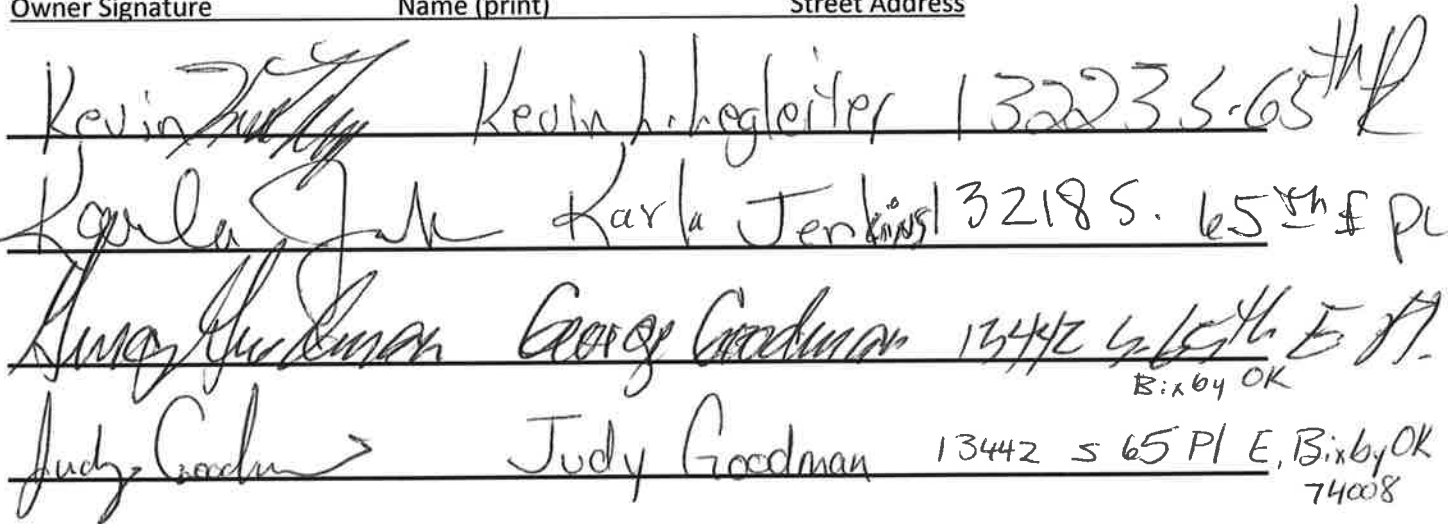 Owner Signature Name (print) Street Address
Kevin Kevin L. Legleiter 13223 S. 65th
Karla Karla Jenkins 13218 S. 65th E PL
George Goodman George Goodman 13442 S. 65th E Pl.
Bixby OK
Judy Goodman Judy Goodman 13442 S 65 Pl E, Bixby OK
74008